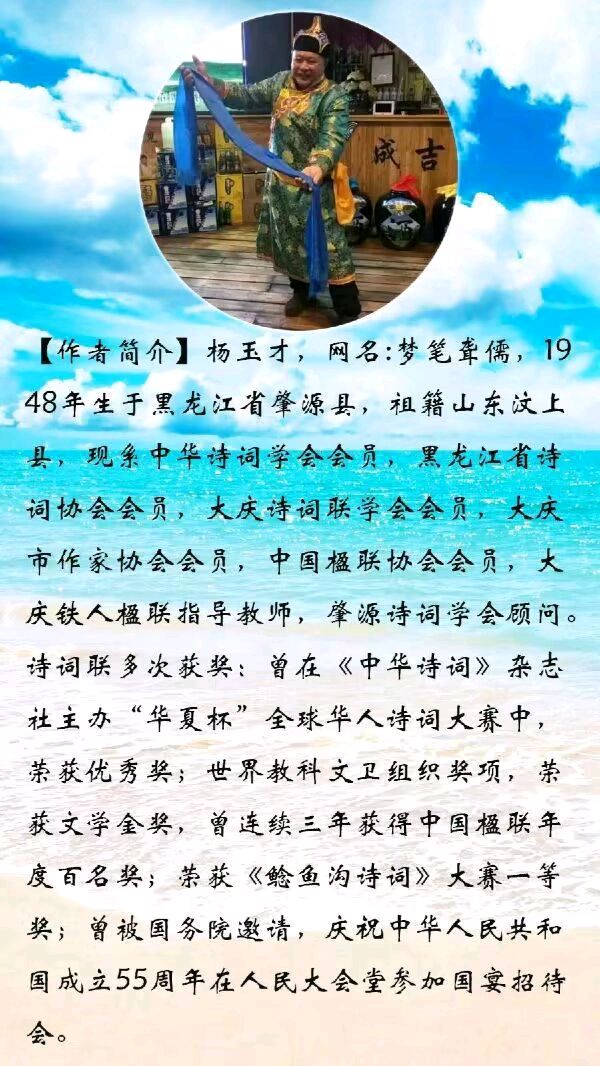 成吉
【作者简介】杨玉才，网名:梦笔聋儒，19
48年生于黑龙江省肇源县，祖籍山东汶上
县，现系中华诗词学会会员，黑龙江省诗
词协会会员，大庆诗词联学会会员，大庆
市作家协会会员，中国楹联协会会员，大
庆铁人楹联指导教师，肇源诗词学会顾问。
诗词联多次获奖：曾在《中华诗词》杂志
社主办“华夏杯”全球华人诗词大赛中，
荣获优秀奖；世界教科文卫组织奖项，荣
获文学金奖，曾连续三年获得中国楹联年
度百名奖；荣获《鲶鱼沟诗词》大赛一等
奖；曾被国务院邀请，庆祝中华人民共和
国成立55周年在人民大会堂参加国宴招待
会。